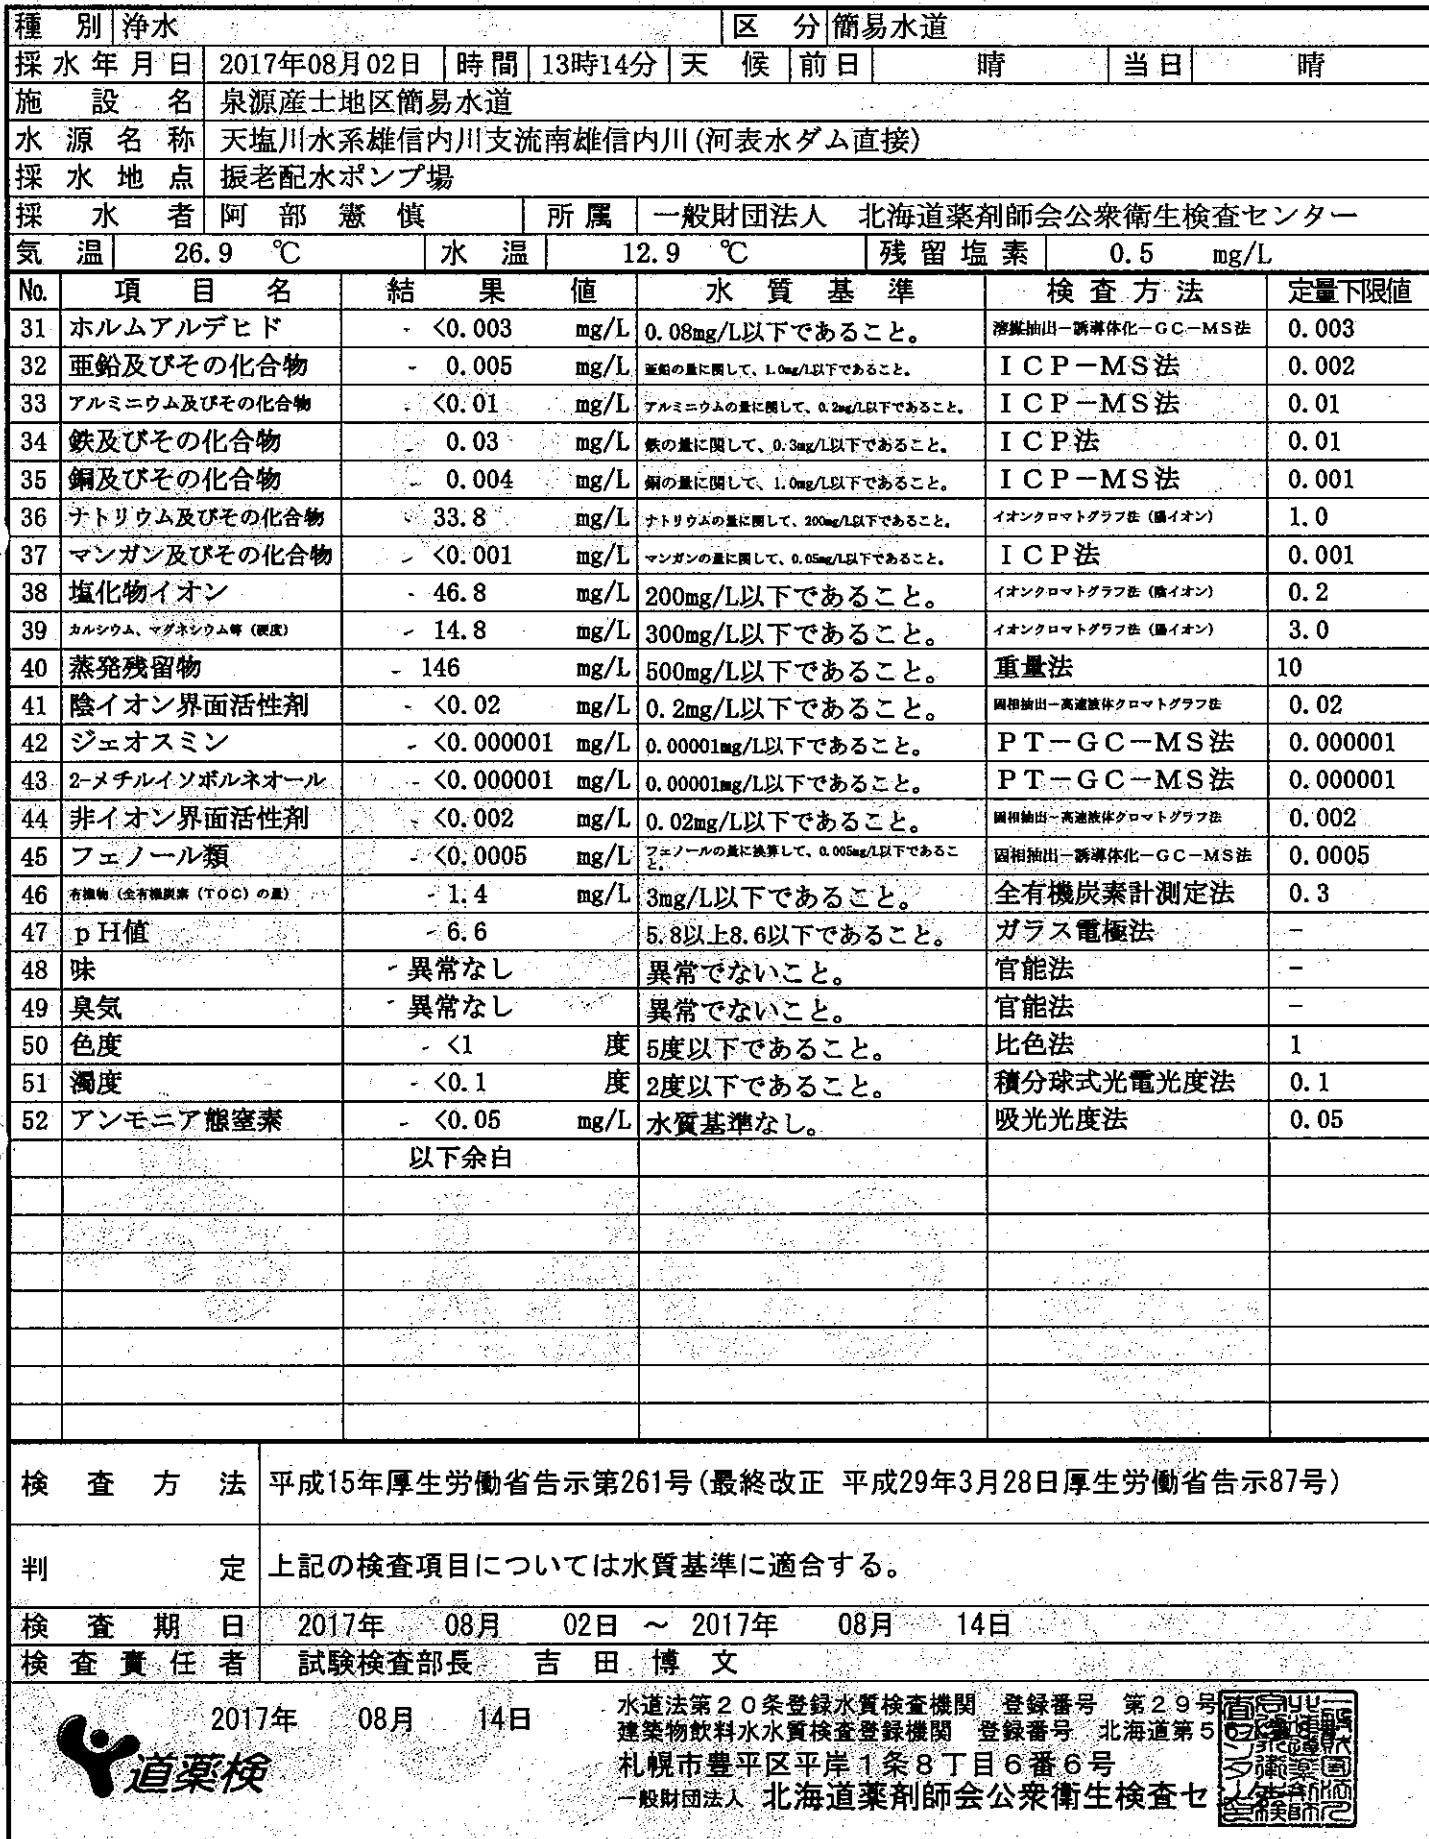 種別 浄水 区分 簡易水道
採水年月日 2017年08月02日 時間 13時14分 天候 前日 晴 当日 晴
施設名 泉源産士地区簡易水道
水源名称 天塩川水系雄信内川支流南雄信内川(河表水ダム直接)
採水地点 振老配水ポンプ場
採水者 阿部憲慎 所属 一般財団法人 北海道薬剤師会公衆衛生検査センター
気温 26.9 ℃ 水温 12.9 ℃ 残留塩素 0.5 mg/L
No. 項目名 結果値 水質基準 検査方法 定量下限値
31 ホルムアルデヒド <0.003 mg/L 0.08mg/L以下であること。 溶媒抽出-誘導体化-GC-MS法 0.003
32 亜鉛及びその化合物 0.005 mg/L 亜鉛の量に関して、1.0mg/L以下であること。 ICP-MS法 0.002
33 アルミニウム及びその化合物 <0.01 mg/L アルミニウムの量に関して、0.2mg/L以下であること。 ICP-MS法 0.01
34 鉄及びその化合物 0.03 mg/L 鉄の量に関して、0.3mg/L以下であること。 ICP法 0.01
35 銅及びその化合物 0.004 mg/L 銅の量に関して、1.0mg/L以下であること。 ICP-MS法 0.001
36 ナトリウム及びその化合物 33.8 mg/L ナトリウムの量に関して、200mg/L以下であること。 イオンクロマトグラフ法(陽イオン) 1.0
37 マンガン及びその化合物 <0.001 mg/L マンガンの量に関して、0.05mg/L以下であること。 ICP法 0.001
38 塩化物イオン 46.8 mg/L 200mg/L以下であること。 イオンクロマトグラフ法(陰イオン) 0.2
39 カルシウム、マグネシウム等(硬度) 14.8 mg/L 300mg/L以下であること。 イオンクロマトグラフ法(陽イオン) 3.0
40 蒸発残留物 146 mg/L 500mg/L以下であること。 重量法 10
41 陰イオン界面活性剤 <0.02 mg/L 0.2mg/L以下であること。 固相抽出-高速液体クロマトグラフ法 0.02
42 ジェオスミン <0.000001 mg/L 0.00001mg/L以下であること。 PT-GC-MS法 0.000001
43 2-メチルイソボルネオール <0.000001 mg/L 0.00001mg/L以下であること。 PT-GC-MS法 0.000001
44 非イオン界面活性剤 <0.002 mg/L 0.02mg/L以下であること。 固相抽出-高速液体クロマトグラフ法 0.002
45 フェノール類 <0.0005 mg/L フェノールの量に換算して、0.005mg/L以下であること。 固相抽出-誘導体化-GC-MS法 0.0005
46 有機物(全有機炭素(TOC)の量) 1.4 mg/L 3mg/L以下であること。 全有機炭素計測定法 0.3
47 pH値 6.6 5.8以上8.6以下であること。 ガラス電極法 -
48 味 異常なし 異常でないこと。 官能法 -
49 臭気 異常なし 異常でないこと。 官能法 -
50 色度 <1 度 5度以下であること。 比色法 1
51 濁度 <0.1 度 2度以下であること。 積分球式光電光度法 0.1
52 アンモニア態窒素 <0.05 mg/L 水質基準なし。 吸光光度法 0.05
以下余白
検査方法 平成15年厚生労働省告示第261号(最終改正 平成29年3月28日厚生労働省告示87号)
判定 上記の検査項目については水質基準に適合する。
検査期日 2017年 08月 02日 ～ 2017年 08月 14日
検査責任者 試験検査部長 吉田博文
2017年 08月 14日
水道法第20条登録水質検査機関 登録番号 第29号
建築物飲料水水質検査登録機関 登録番号 北海道第5
札幌市豊平区平岸1条8丁目6番6号
一般財団法人 北海道薬剤師会公衆衛生検査セ
道薬検